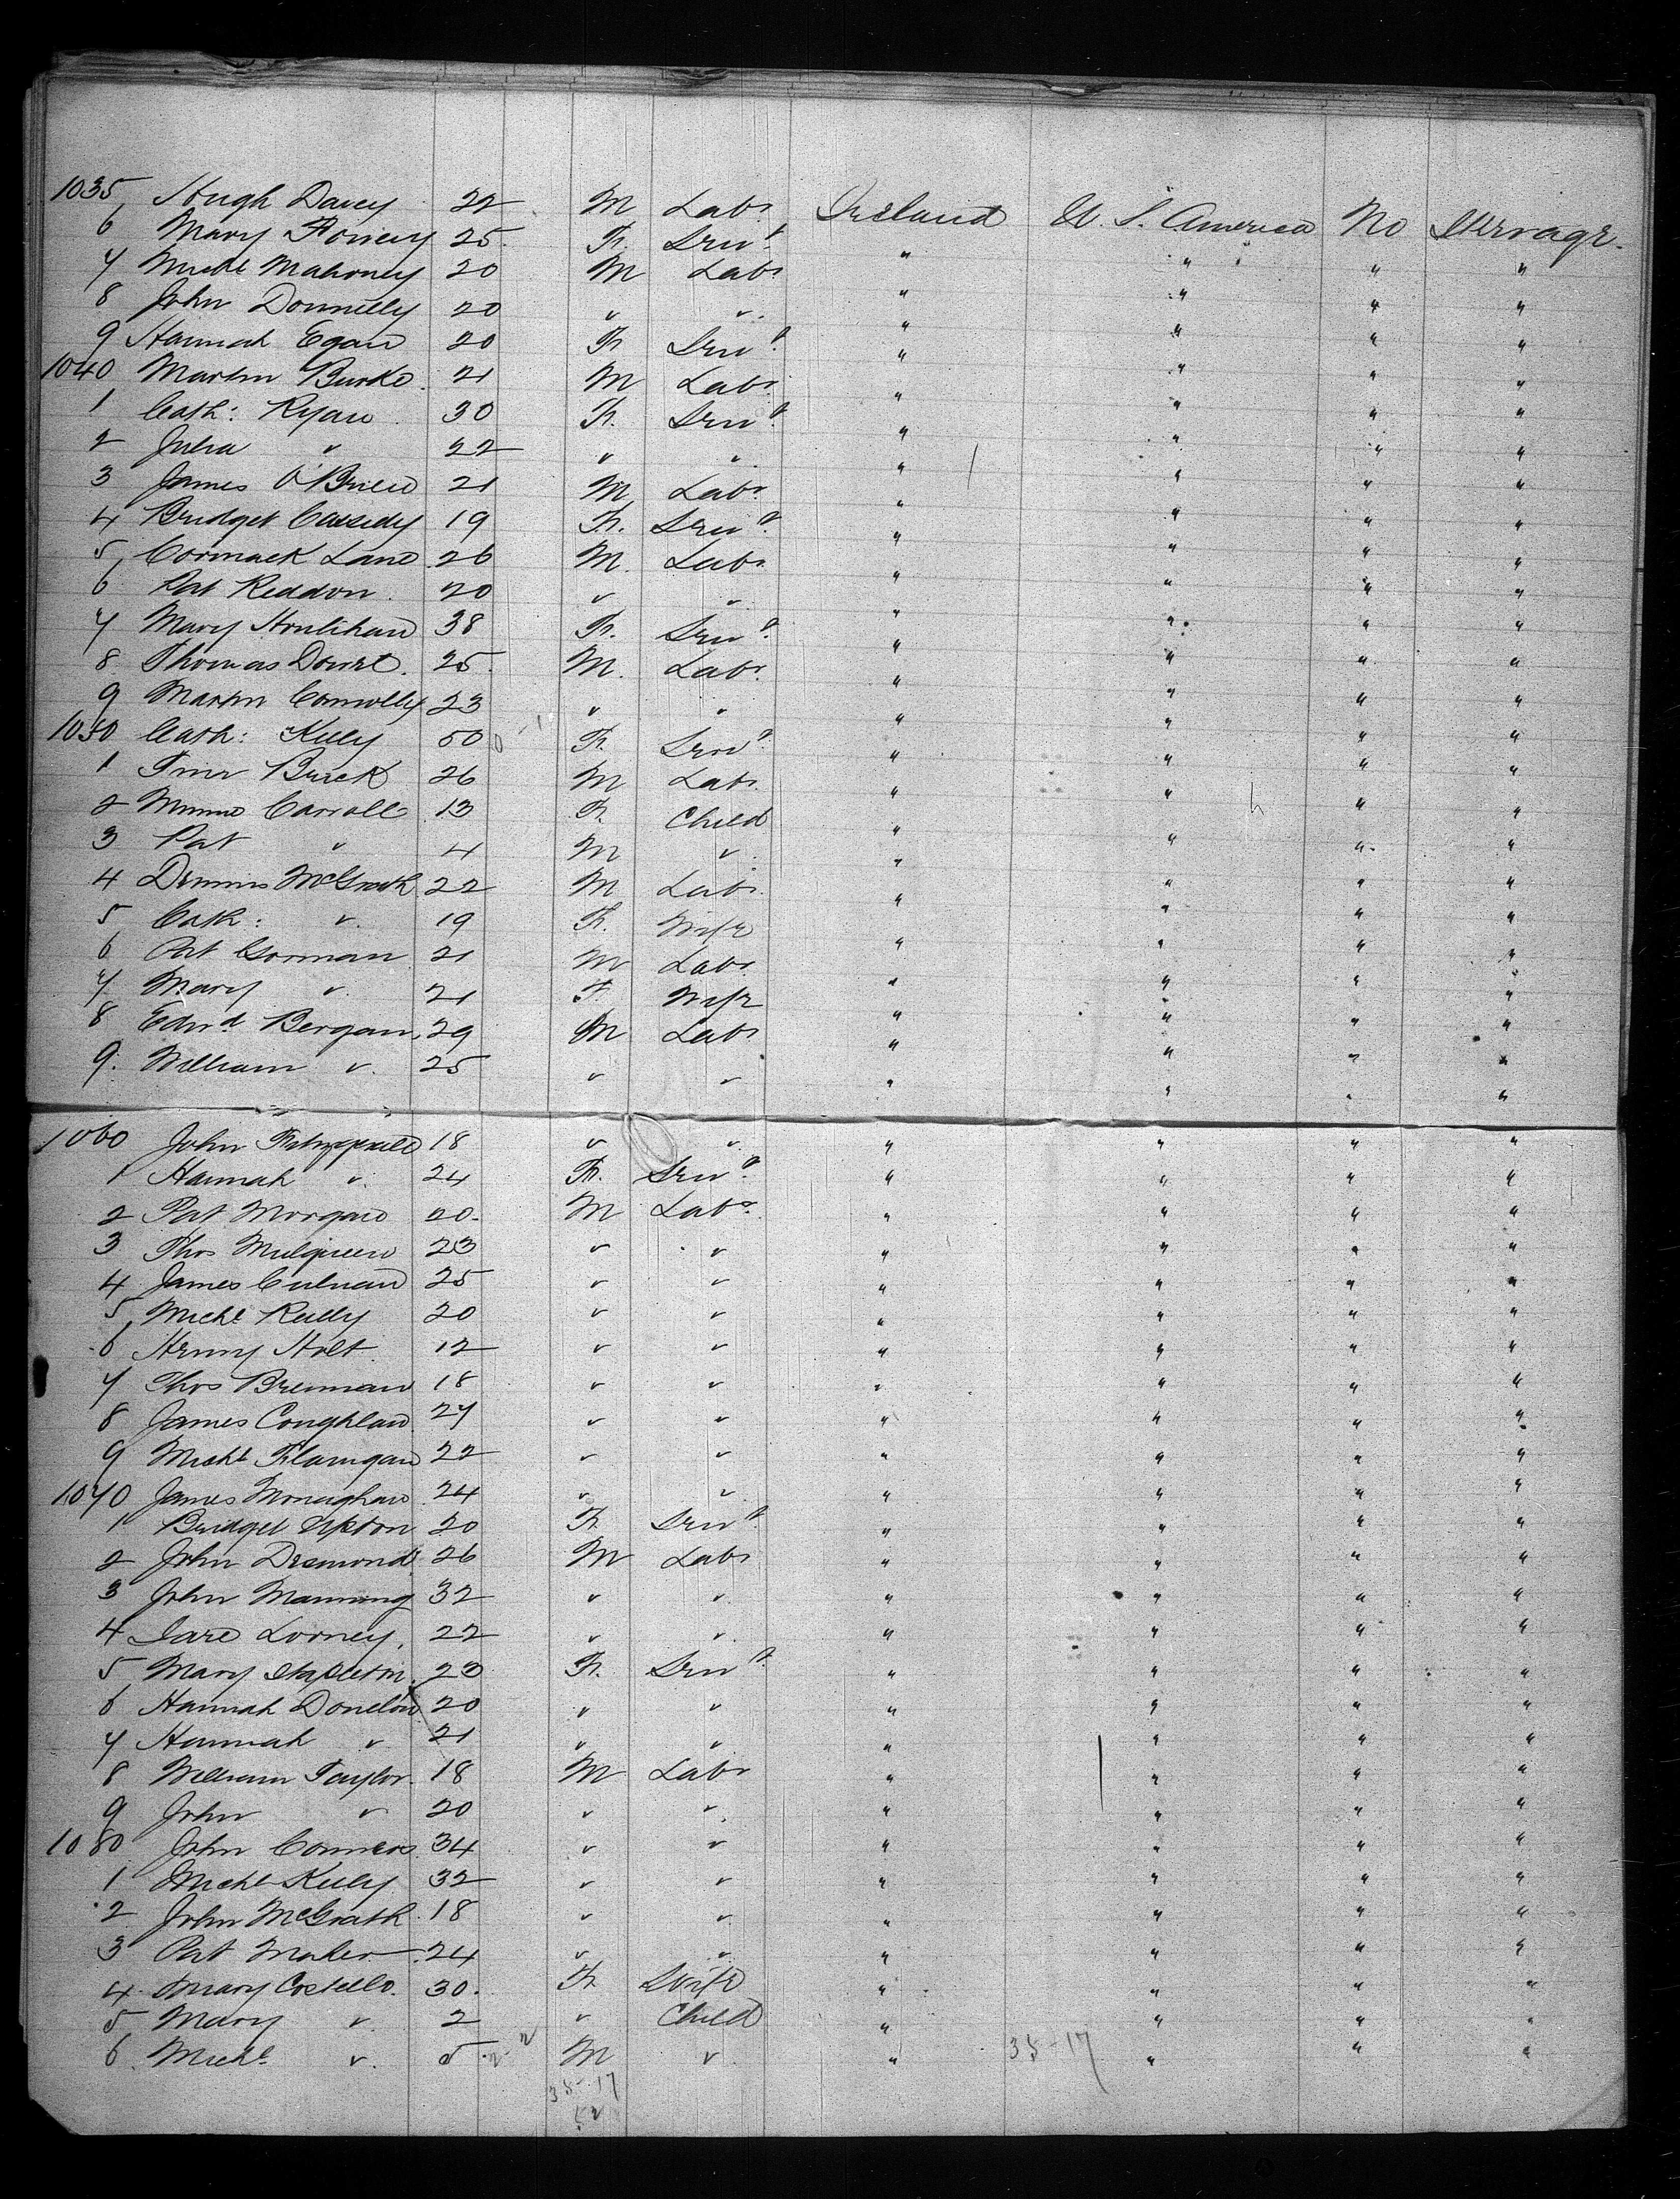 1035 Hugh Davey 22 M Labr Ireland U. S. America No Steerage.
6 Mary 25. F. Servt. " " " "
7 Michl Mahoney 20 M Labr " " " "
8 John Donnelly 20 " " " " " "
9 Hannah Egan 20 F Servt. " " " "
1040 Martin Burke 21 M Labr. " " " "
1 Cath: Ryan 30 F. Servt. " " " "
2 Julia " 22 " " " " " "
3 James O'Brien 21 M Labr. " " " "
4 Bridget Cassidy 19 F. Servt. " " " "
5 Cormack Lane 26 M. Labr. " " " "
6 Pat Reddon. 20 " " " " " "
7 Mary Houlihan 38 F. Servt. " " " "
8 Thomas 25. M. Labr. " " " "
9 Martin Connolly 23 " " " " " "
1050 Cath: Kelly 50 F. Servt. " " " "
1 Buick 26 M Labr. " " " "
2 Carroll 13 F. Child " " " "
3 Pat " 4 M " " " " "
4 Dennis McGrath 22 M Labr. " " " "
5 Cath: " 19 F. Wife " " " "
6 Pat Gorman 21 M Labr. " " " "
7 Mary " 21 F. Wife " " " "
8 Edwd Bergan, 29 M Labr " " " "
9. William " 25 " " " " " "
1060 John Fitzgerald 18 " " " " " "
1 Hannah " 24 F. Servt. " " " "
2 Pat Morgan 20. M Labr. " " " "
3 Thos Mulqueen 23 " " " " " "
4 James Culnan 25 " " " " " "
5 Michl Reilly 20 " " " " " "
6 Henry Holt 12 " " " " " "
7 Thos Brennan 18 " " " " " "
8 James Coughlan 27 " " " " " "
9 Michl Flanigan 22 " " " " " "
1070 James Monaghan 24 " " " " " "
1 Bridget Upton 20 F. Servt. " " " "
2 John Desmond 26 M Labr " " " "
3 John Manning 32 " " " " " "
4 22 " " " " " "
5 Mary Stapleton 23 F. Servt. " " " "
6 Hannah Donelan 20 " " " " " "
7 Hannah " 21 " " " " " "
8 William Taylor 18 M Labr " " " "
9 John " 20 " " " " " "
1080 John Connors 34 " " " " " "
1 Michl Kelly 32 " " " " " "
2 John McGrath 18 " " " " " "
3 Pat Maher 24 " " " " " "
4. Mary Costello. 30. F. Wife " " " "
5 Mary " 2 " Child " " " "
6. Michl " 5 M " " " " "
38-17 38-17